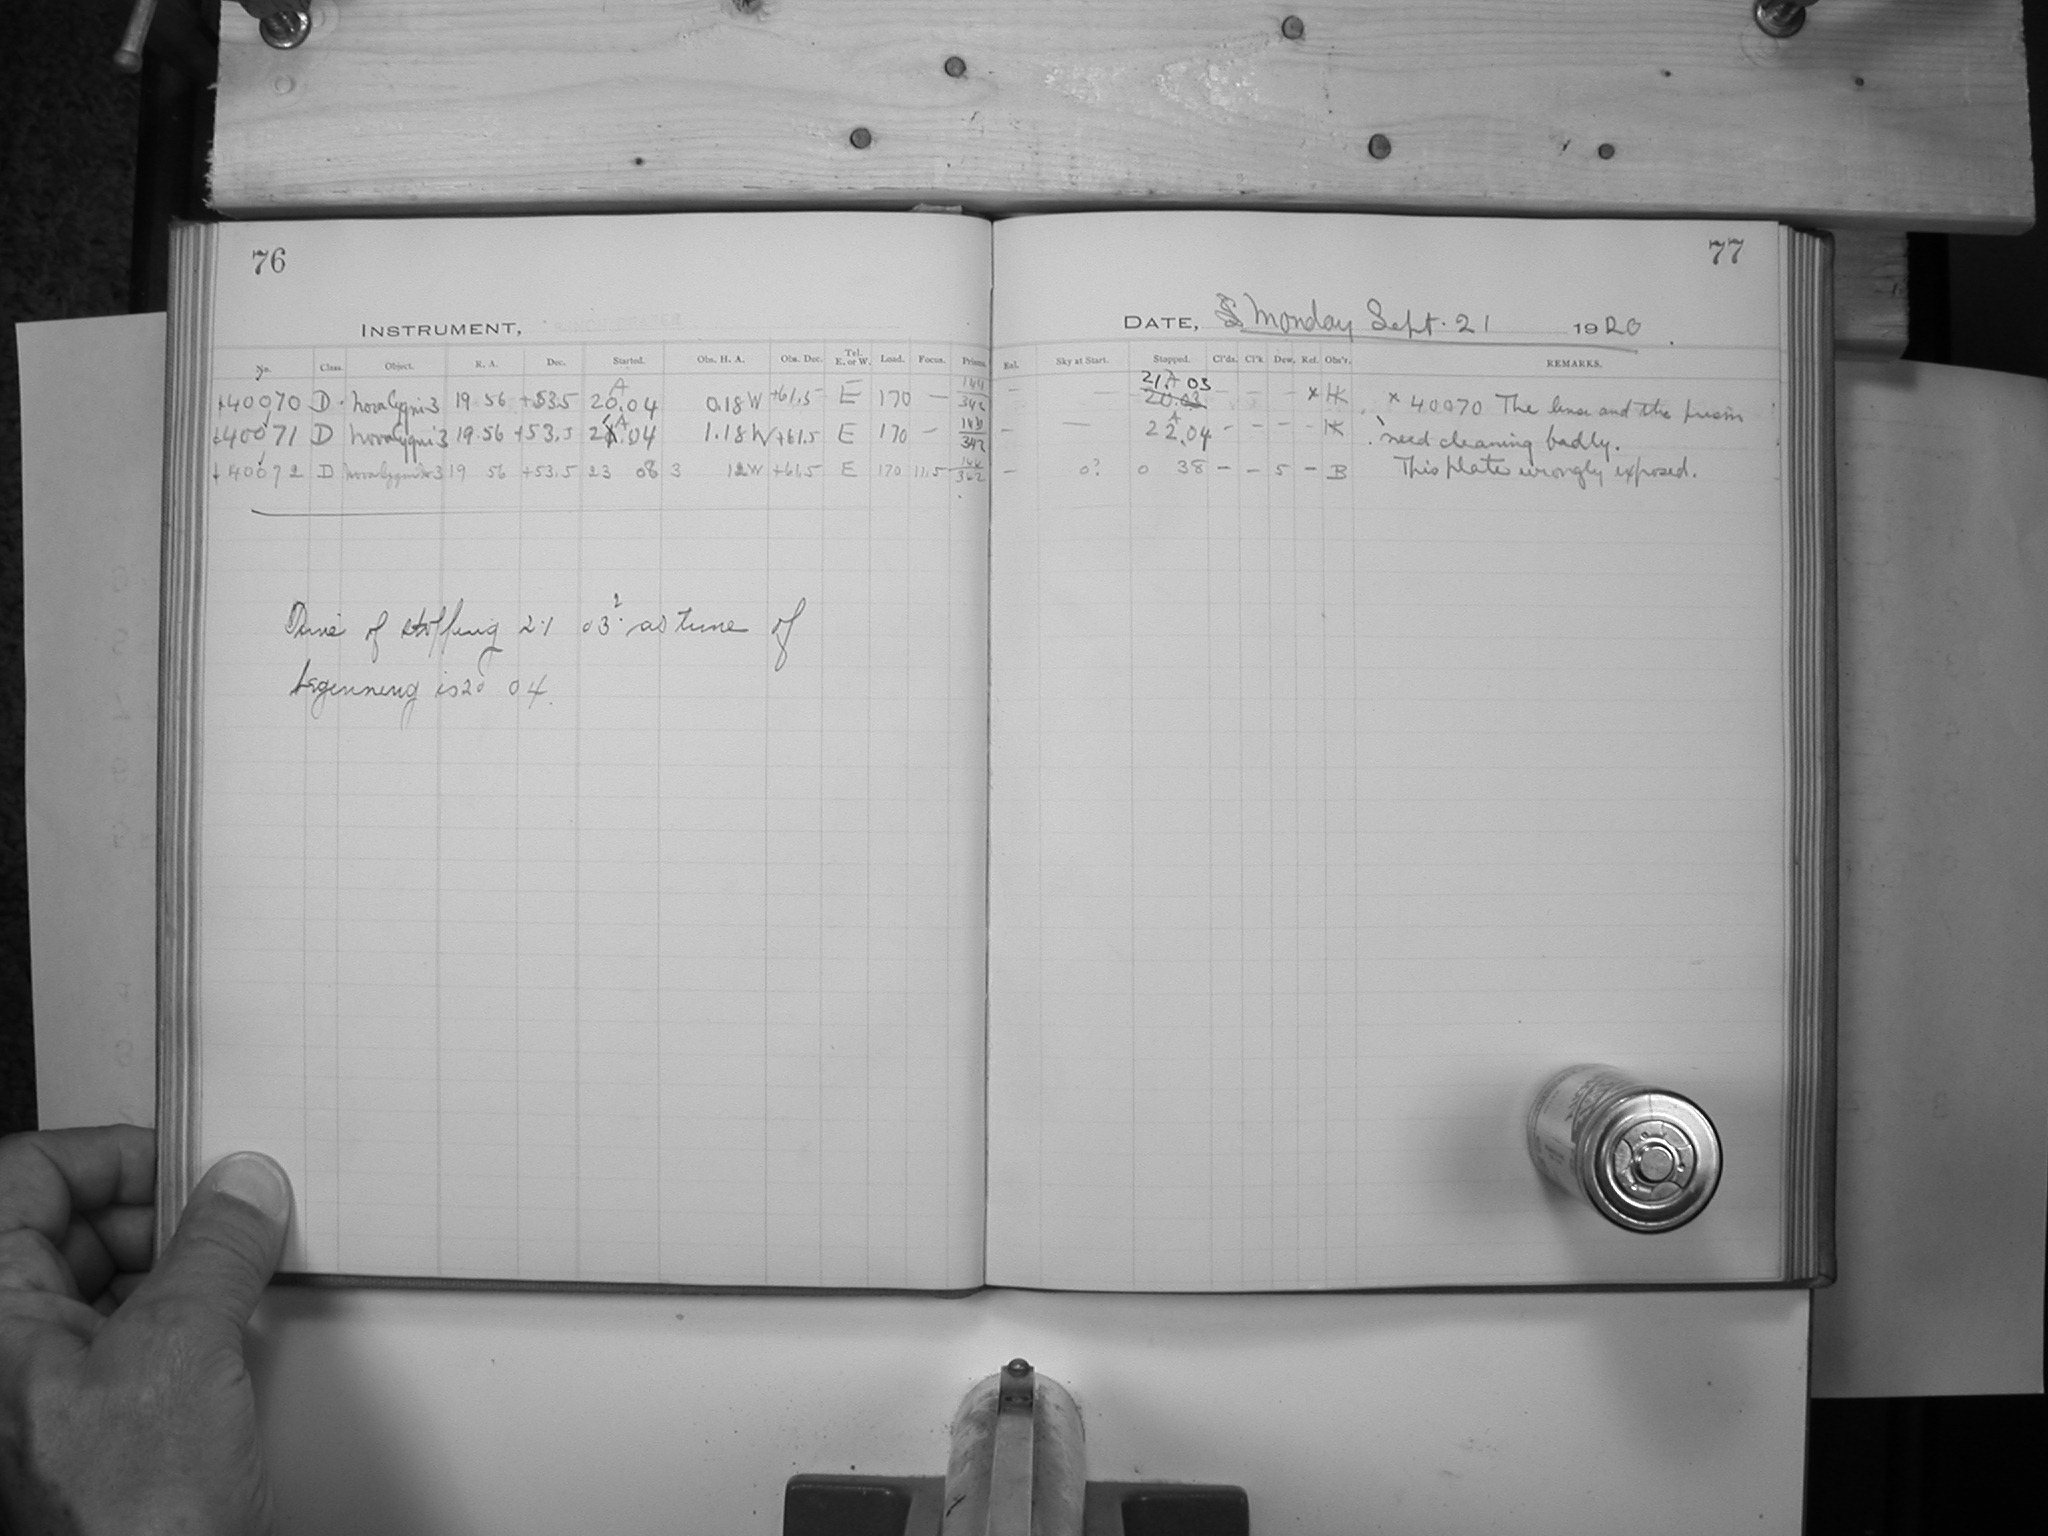 76
77
INSTRUMENT,
DATE, Monday Sept. 21 1920.
No. Class. Object. R. A. Dec. Started. Obs. H. A. Obs. Dec. Tel. E. or W. Load. Focus. Prisms. Rel. Sky at Start. Stopped. Cl'ds. Cl'k. Dew. Ref. Obs'r. REMARKS.
40070 D. Nova Cygni 3 19 56 +53.5 20.04 A 0.18 W +61.5 E 170 — — — 21.03 A 20.03 — — — x HK x 40070 The lens and the prism
40071 D Nova Cygni 3 19.56 +53.5 21.04 A 1.18 W +61.5 E 170 — — — 22.04 A — — — — HK need cleaning badly.
40072 D Nova Cygni 3 19 56 +53.5 23 08 3 12 W +61.5 E 170 11.5 — 0? 0 38 — — 5 — B This plate wrongly exposed.
Time of stopping 21 03? as time of
beginning is 20 04.